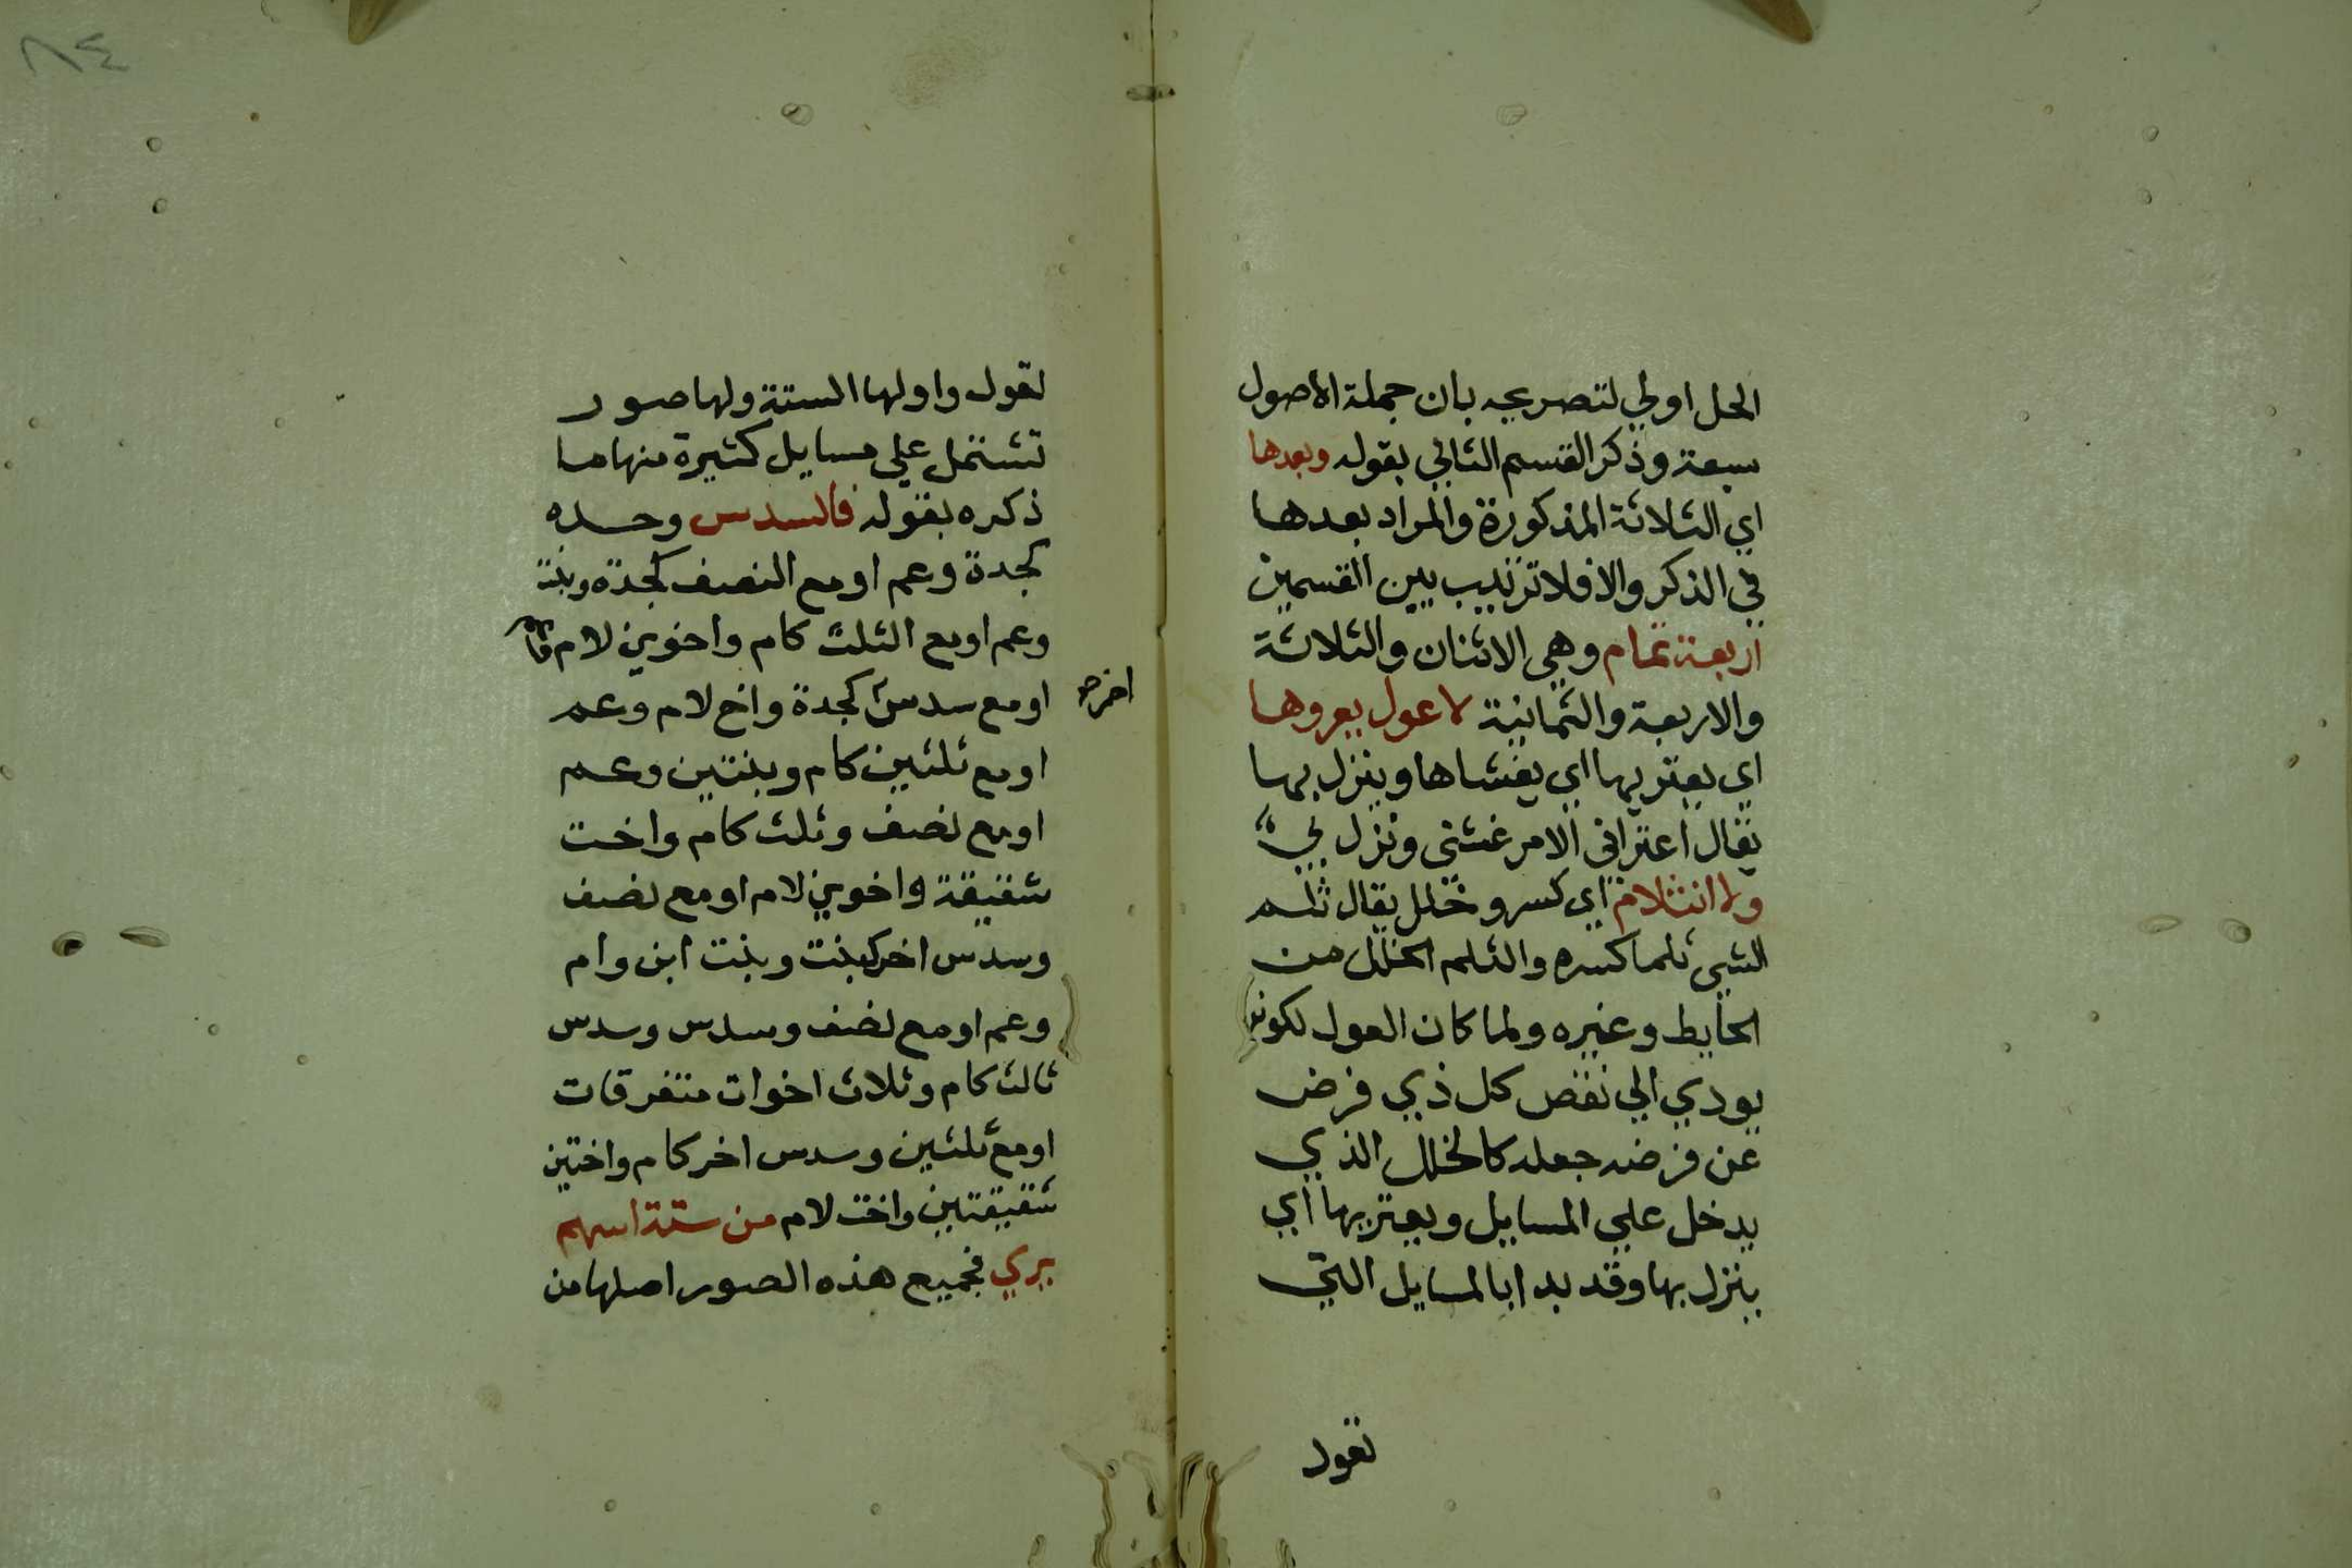 الحل اولي لتصريحه بان جملة الاصول
سبعة وذكر القسم الثاني بقوله وبعدها
اي الثلاثة المذكورة والمراد بعدها
في الذكر والا فلا ترتيب بين القسمين
اربعة تمام وهي الاثنان والثلاثة
والاربعة والثمانية لا عول يعروها
اي يعتريها اي يغشاها وينزل بها
يقال اعتراني الامر غشني ونزل بي
ولا انثلام اي كسر وخلل يقال ثلم
الشي ثلما كسره والثلم الخلل من
الحايط وغيره ولما كان العول لكونه
يودي الي نقص كل ذي فرض
عن فرضه جعله كالخلل الذي
يدخل علي المسايل ويعتريها اي
ينزل بها وقد بدا بالمسايل التي
تعول
٨٤
تعول واولها الستة ولها صور
تشتمل علي مسايل كثيرة منها ما
ذكره بقوله فالسدس وحده
كجدة وعم او مع النصف كجدة وبنت
وعم او مع الثلث كام واخوين لام
او مع سدس كجدة واخ لام وعم
اخر صح
او مع ثلثين كام وبنتين وعم
او مع نصف وثلث كام واخت
شقيقة واخوين لام او مع نصف
وسدس اخر كبنت وبنت ابن وام
وعم او مع نصف وسدس وسدس
ثالث كام وثلاث اخوات متفرقات
او مع ثلثين وسدس اخر كام واختين
شقيقتين واخت لام من ستة اسهم
يري فجميع هذه الصور اصلها من